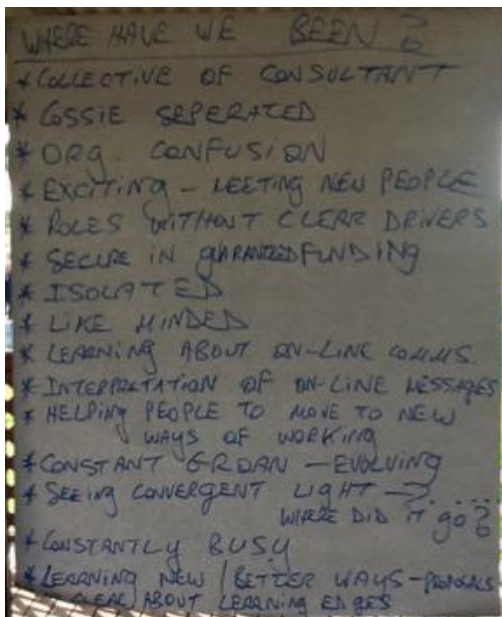 WHERE HAVE WE BEEN?
* COLLECTIVE OF CONSULTANT
* COSSIE SEPERATED
* ORG. CONFUSION
* EXCITING - MEETING NEW PEOPLE
* ROLES WITHOUT CLEAR DRIVERS
* SECURE IN FUNDING
* ISOLATED
* LIKE MINDED
* LEARNING ABOUT ON-LINE COMMS.
* INTERPRETATION OF ON-LINE MESSAGES
* HELPING PEOPLE TO MOVE TO NEW
WAYS OF WORKING
* CONSTANT GROAN - EVOLVING
* SEEING CONVERGENT LIGHT -?....
WHERE DID IT go?
* CONSTANTLY BUSY
* LEARNING NEW / BETTER WAYS - PROPOSALS
CLEAR ABOUT LEARNING EDGES